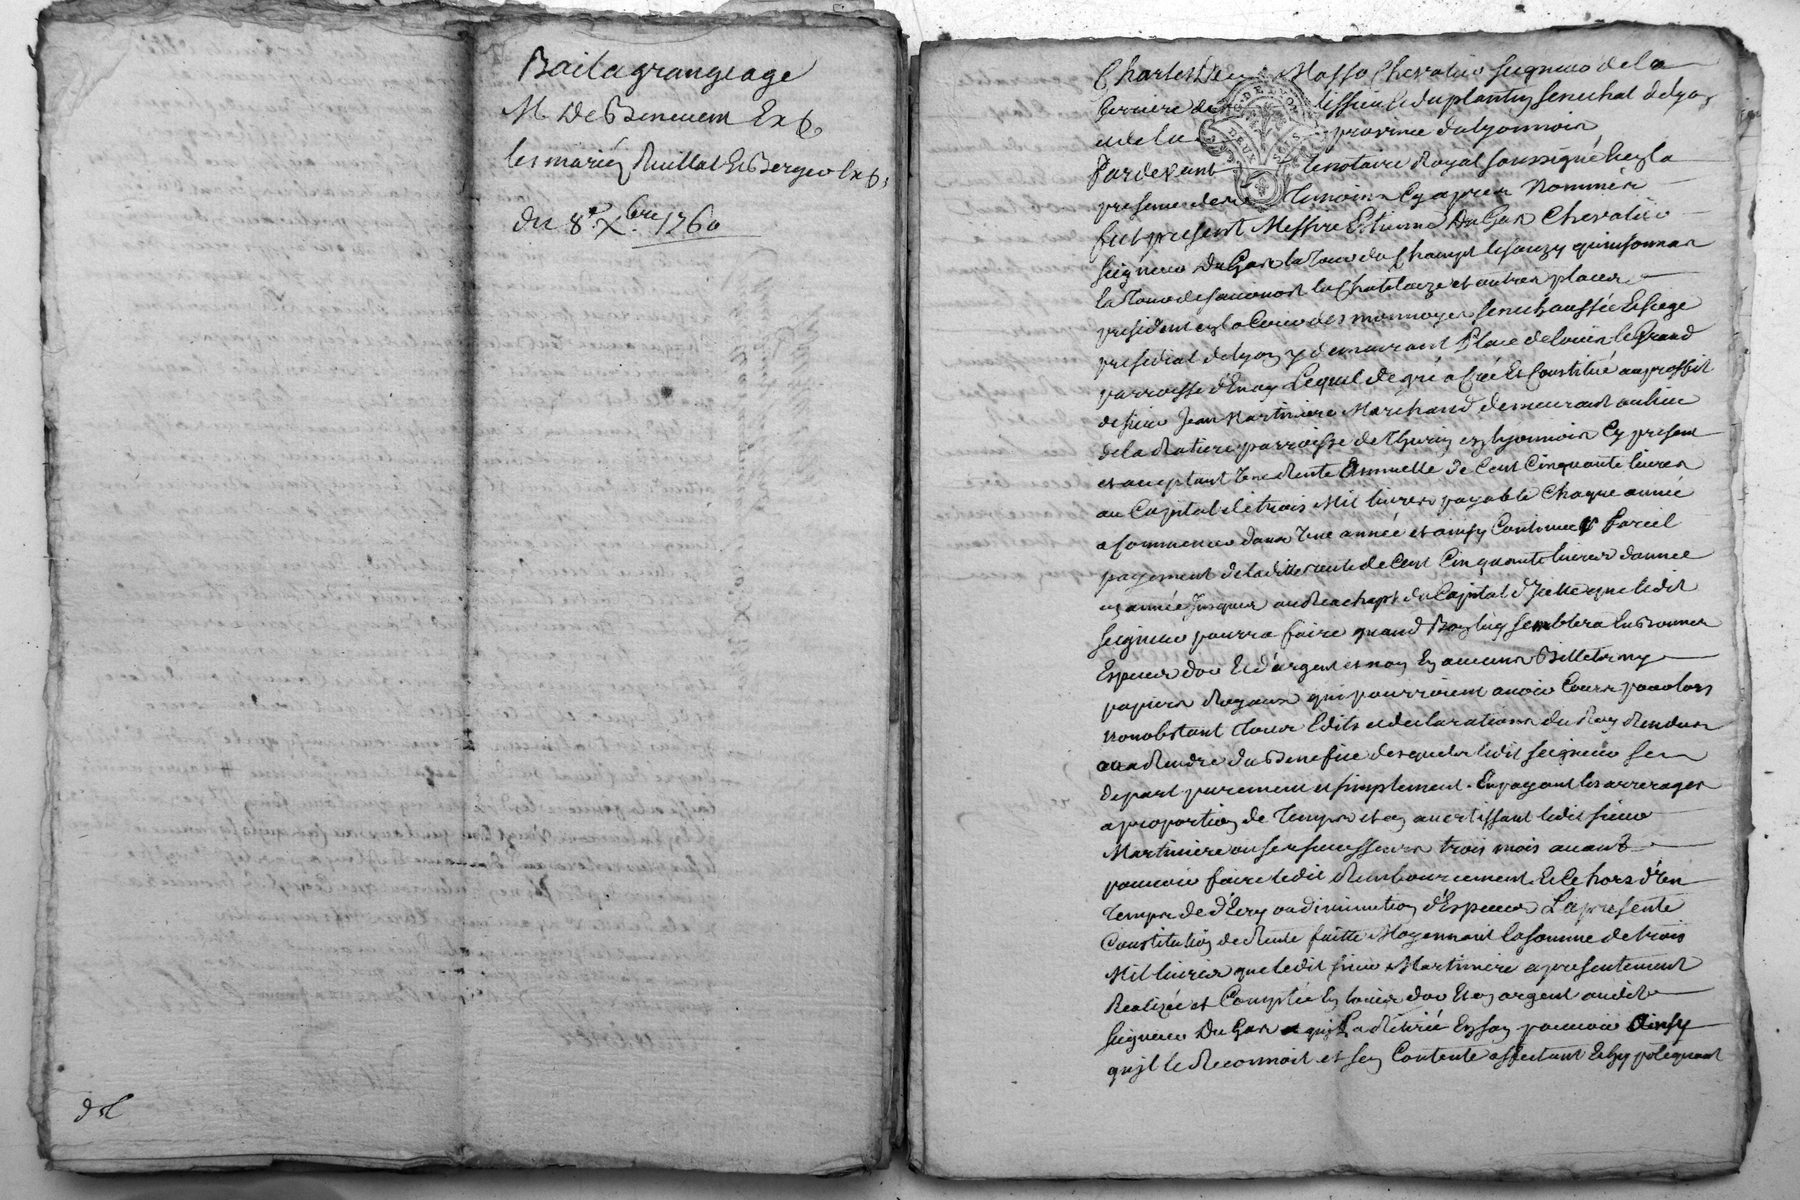 Bail a grangeage
M. De Benevem Exp.
les mariéz Ruillat Et Berger Exp.
du 8.e Xbre. 1760
Charles De Masso Chevalier seigneur de la
ferriere lissieu & du plantin senechal de lyon
et de la province du lyonnois
Pardevant le notaire Royal soussigné En la
presence des Temoins Cy apres Nommés
fut present Messire Etienne DuGas Chevalier
seigneur DuGas la Tour du Champt quinsonnas
la Tour de et autres places
president en la Cour des monnoyes senechaussée Et siege
presidial de lyon y demeurant Place de louis le Grand
parroisse d'Enay Lequel de gré a Créé Et Constitué au proffit
de sieur Jean Martiniere Marchand demeurant au lieu
de la Ratiere parroisse de Thurin en lyonnois Cy present
et acceptant Une Rente Annuelle de Cent Cinquante livres
au Capital de trois Mil livres payable Chaque année
a Commencer dans Une année et ainsy Continuer Pareil
payement de laditte rente de Cent Cinquante livres d'année
en année Jusques au Reachapt du Capital d'Icelle que ledit
seigneur pourra faire quand Bon luy semblera En Bonnes
Especes d'or Et d'argent et non En aucuns Billets ny
papiers Royaux qui pourroient avoir Cours pour lors
nonobstant Tous Edits et declarations du Roy Rendus
ou a Rendre du Benefice desquels ledit seigneur se
depart purement et simplement. En payant les arrerages
a proportion de Temps et en avertissant ledit sieur
Martiniere ou ses successeurs trois mois avant
pouvoir faire ledit Remboursement Et Ce hors d'en
Temps de d'Ecry ou diminution d'Especes La presente
Constitution de Rente faitte Moyennant la somme de trois
Mil livres que ledit sieur Martiniere a presentement
Realizée et Comptée En louis d'or Et en argent audit
seigneur DuGas qui L'a Retirée En son pouvoir Ainsy
qu'il le Reconnoit et s'en Contente affectant Et hypotequant